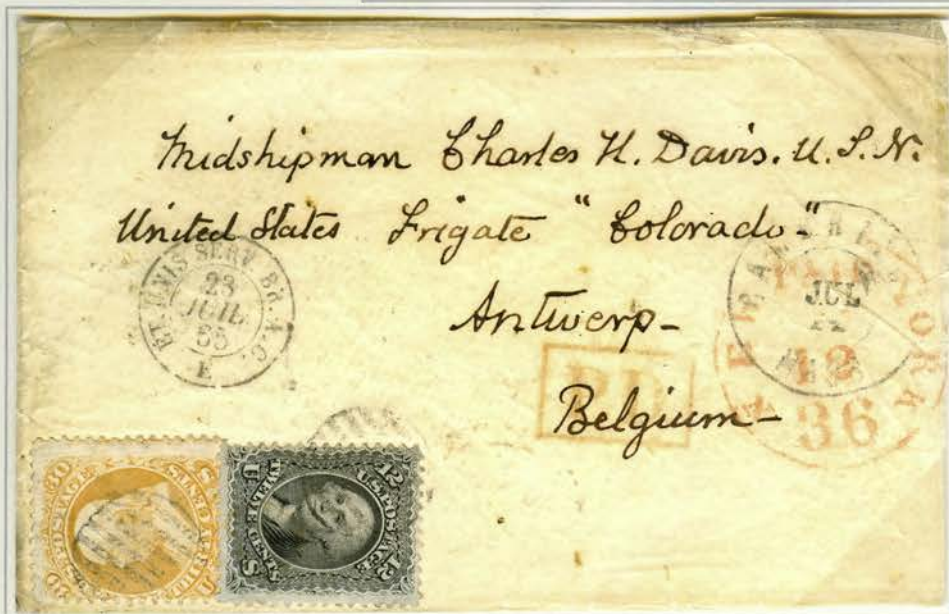 Midshipman Charles H. Davis. U. S. N.
United States Frigate "Colorado"
Antwerp-
Belgium-
ET. UNIS SERV. BR. A.C.
23
JUIL
65
E
P.D.
NEW YORK
PAID
12
36
JUL
U.S. POSTAGE
30
U.S. POSTAGE
12
12
TWELVE CENTS
U S